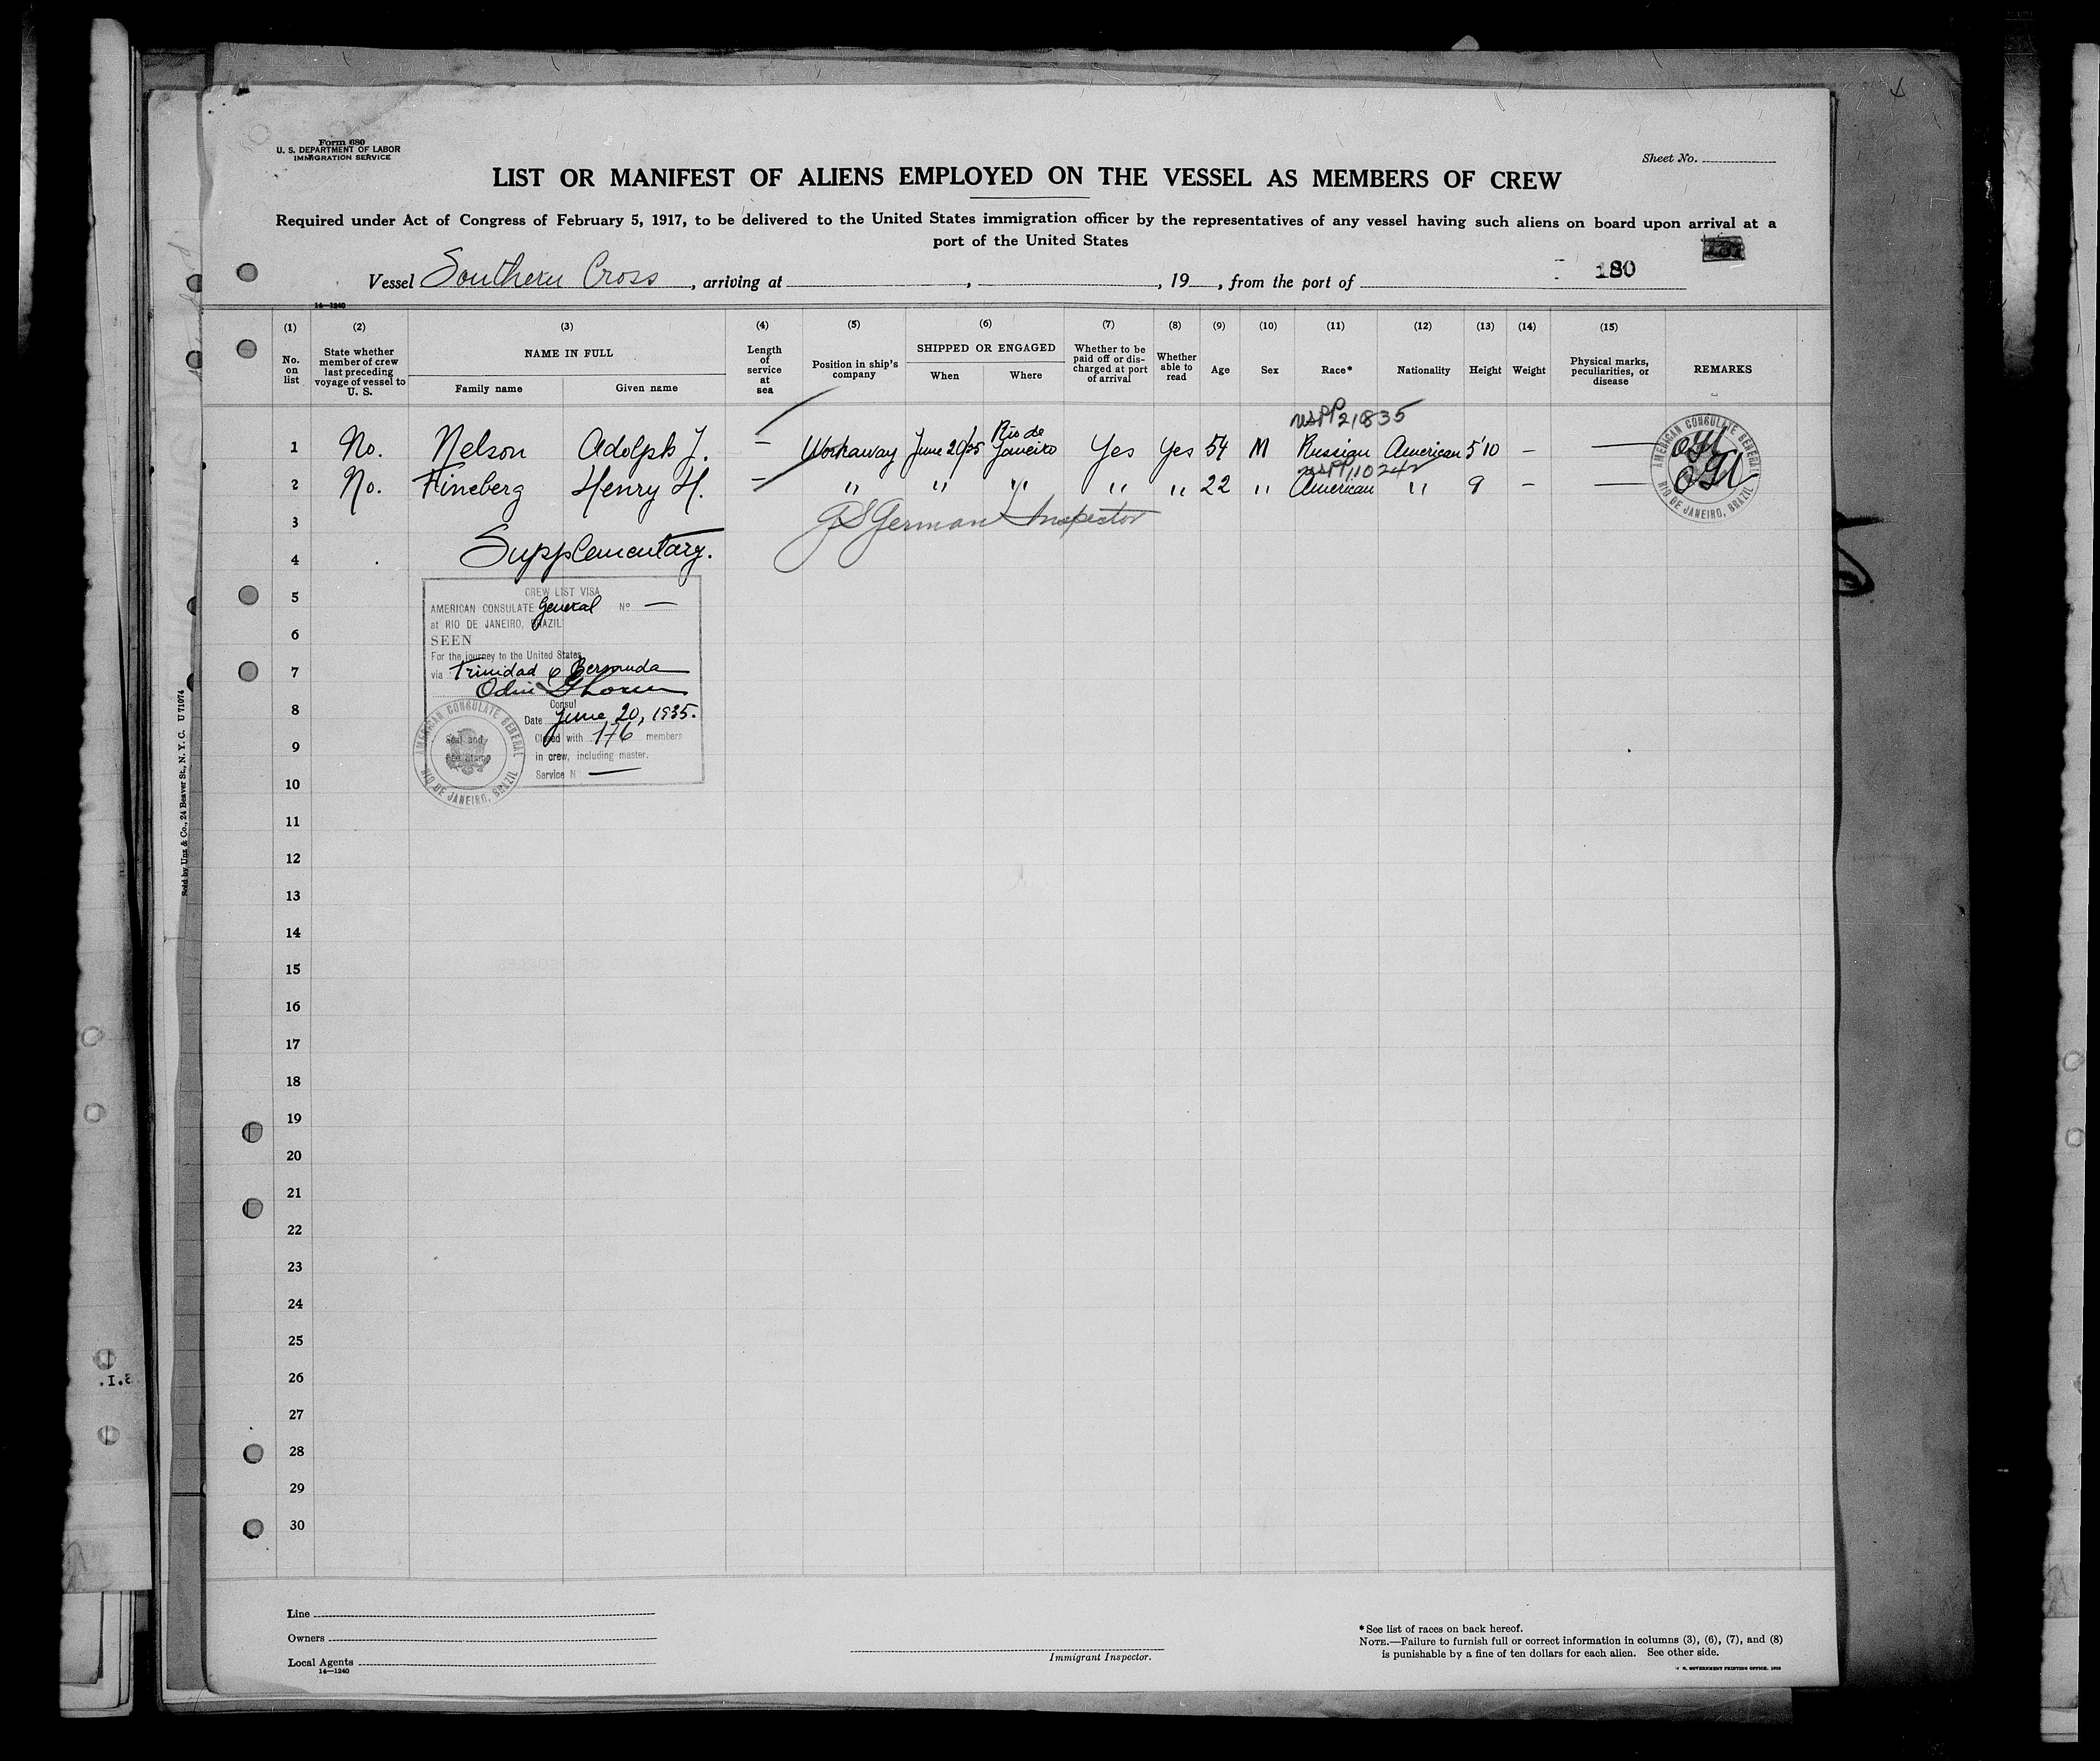 Form 680
U. S. DEPARTMENT OF LABOR
IMMIGRATION SERVICE
Sheet No.
LIST OR MANIFEST OF ALIENS EMPLOYED ON THE VESSEL AS MEMBERS OF CREW
Required under Act of Congress of February 5, 1917, to be delivered to the United States immigration officer by the representatives of any vessel having such aliens on board upon arrival at a
port of the United States
180
Vessel Southern Cross, arriving at , , 19 , from the port of
14—1240
(1) (2) (3) (4) (5) (6) (7) (8) (9) (10) (11) (12) (13) (14) (15)
No. on list
State whether member of crew last preceding voyage of vessel to U. S.
NAME IN FULL
Family name Given name
Length of service at sea
Position in ship's company
SHIPPED OR ENGAGED
When Where
Whether to be paid off or discharged at port of arrival
Whether able to read
Age
Sex
Race*
Nationality
Height
Weight
Physical marks, peculiarities, or disease
REMARKS
USPP 21835
1 No. Nelson Adolph J. — Workaway June 20/35 Rio de Janeiro Yes Yes 54 M Russian American 5'10 — —
USPP 11024
2 No. Fineberg Henry H. — " " " " " 22 " American " 9 — —
AMERICAN CONSULATE GENERAL
RIO DE JANEIRO, BRAZIL
3 German Inspector
4 Supplementary.
5
6
7
8
9
10
11
12
13
14
15
16
17
18
19
20
21
22
23
24
25
26
27
28
29
30
CREW LIST VISA
AMERICAN CONSULATE General No —
at RIO DE JANEIRO, BRAZIL
SEEN
For the journey to the United States
via Trinidad & Bermuda
Consul
Date June 20, 1935.
Closed with 176 members
in crew, including master.
Service No —
Seal and
Fee Stamp
AMERICAN CONSULATE GENERAL
RIO DE JANEIRO, BRAZIL
Sold by Unz & Co., 24 Beaver St., N. Y. C. U 71074
Line
Owners
Local Agents
14—1240
Immigrant Inspector.
*See list of races on back hereof.
NOTE.—Failure to furnish full or correct information in columns (3), (6), (7), and (8)
is punishable by a fine of ten dollars for each alien. See other side.